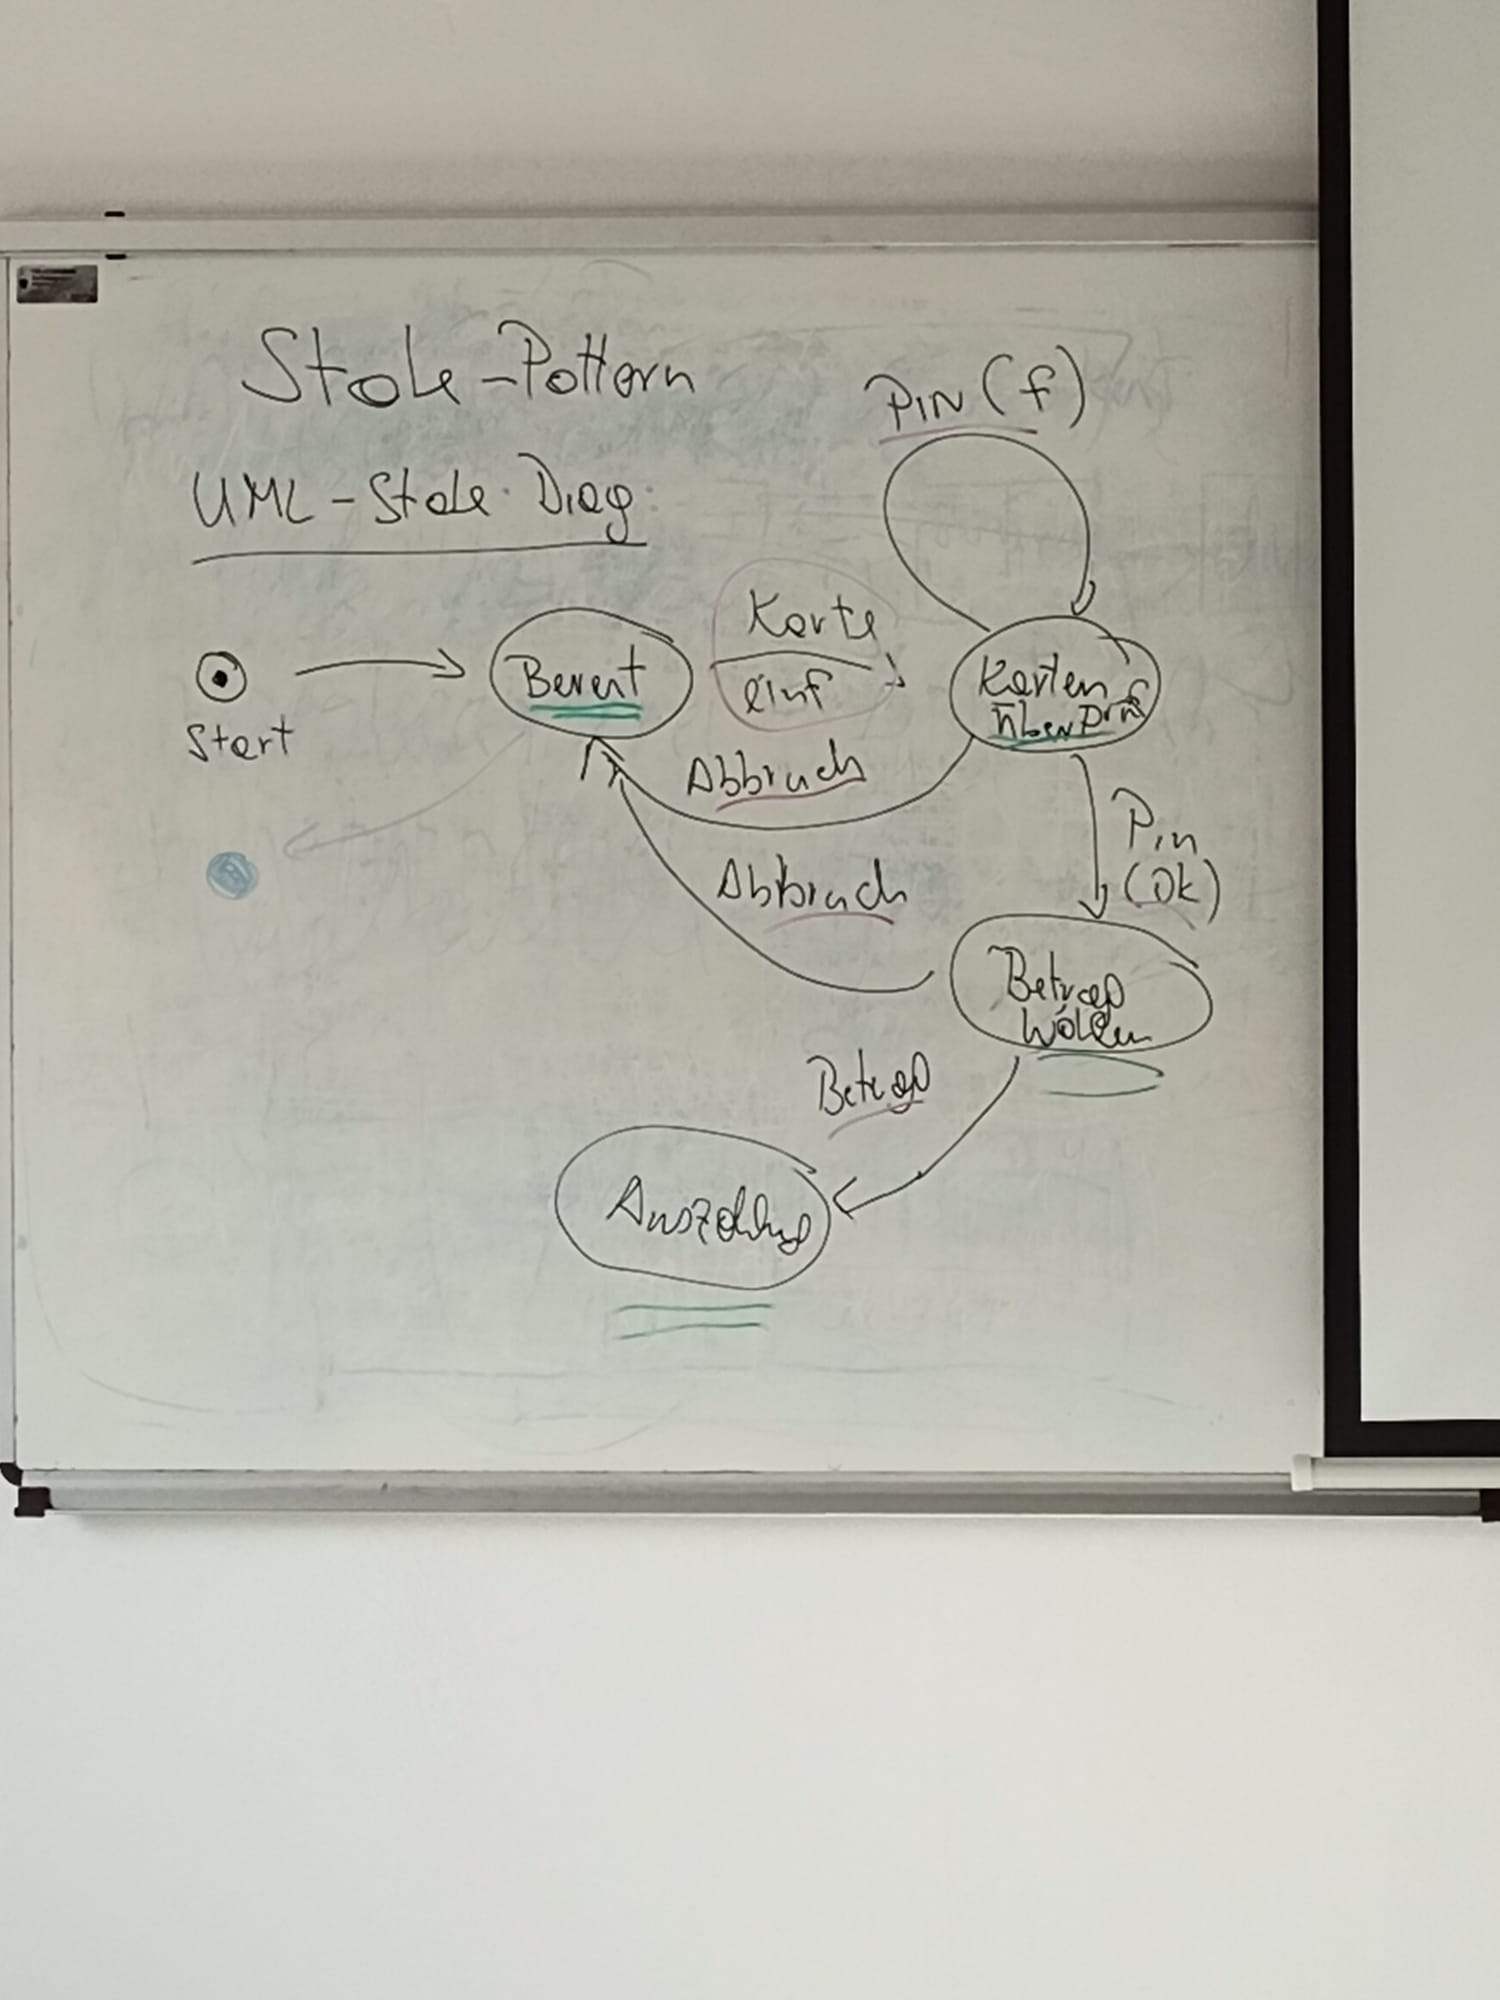 State-Pattern
UML-State-Diag.
PIN (f)
Start
Bereit
Karte
einf
Karten
überprüf
Abbruch
Pin
(Ok)
Abbruch
Betrag
wählen
Betrag
Auszahlung